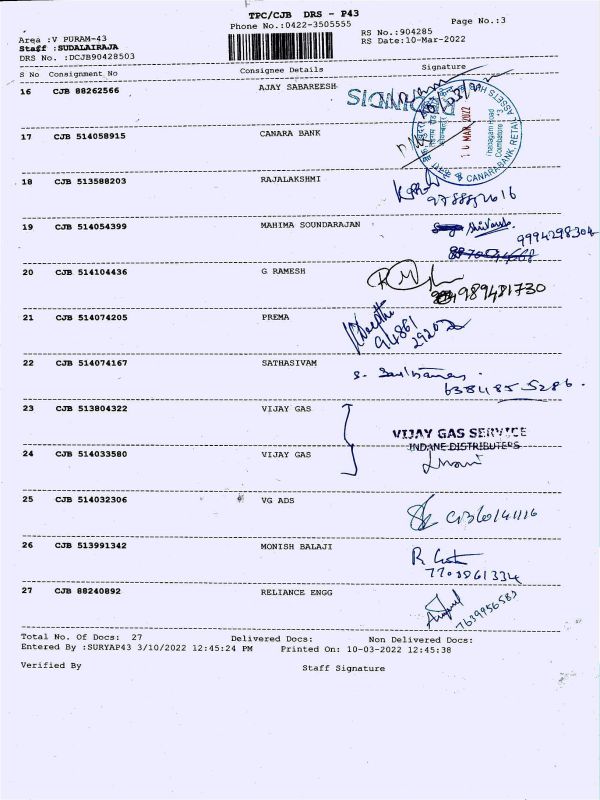 TPC/CJB DRS - P43
Phone No.:0422-3505555
Page No.:3
Area :V PURAM-43
RS No.:904285
Staff :SUDALAIRAJA
RS Date:10-Mar-2022
DRS No. :DCJB90428503
S No Consignment No Consignee Details Signature
16 CJB 88262566 AJAY SABAREESH
17 CJB 514058915 CANARA BANK
10 MAR 2022
CANARA BANK, RETAIL ASSETS HUB
Coimbatore
18 CJB 513588203 RAJALAKSHMI
19 CJB 514054399 MAHIMA SOUNDARAJAN
9994298304
20 CJB 514104436 G RAMESH
21 CJB 514074205 PREMA
94861
22 CJB 514074167 SATHASIVAM
6384855286.
23 CJB 513804322 VIJAY GAS
VIJAY GAS SERVICE
INDANE DISTRIBUTERS
24 CJB 514033580 VIJAY GAS
25 CJB 514032306 VG ADS
26 CJB 513991342 MONISH BALAJI
7703861334
27 CJB 88240892 RELIANCE ENGG
7639956583
Total No. Of Docs: 27 Delivered Docs: Non Delivered Docs:
Entered By :SURYAP43 3/10/2022 12:45:24 PM Printed On: 10-03-2022 12:45:38
Verified By Staff Signature